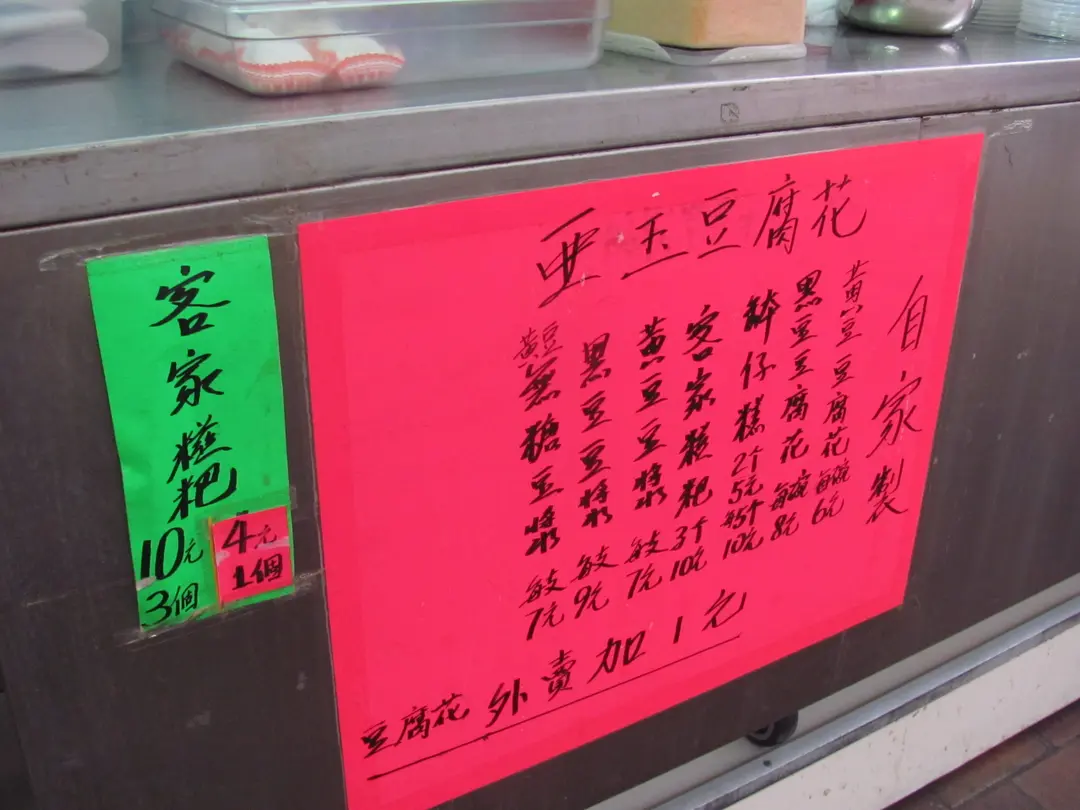 亜玉豆腐花
自家製
黃豆豆腐花每碗6元
黑豆豆腐花每碗8元
缽仔糕2个5元每5个10元
客家糍粑3个10元
黃豆豆漿每支7元
黑豆豆漿每支9元
黃豆無糖豆漿每支7元
豆腐花外賣加1元
客家糍粑
10元
3個
4元
1個